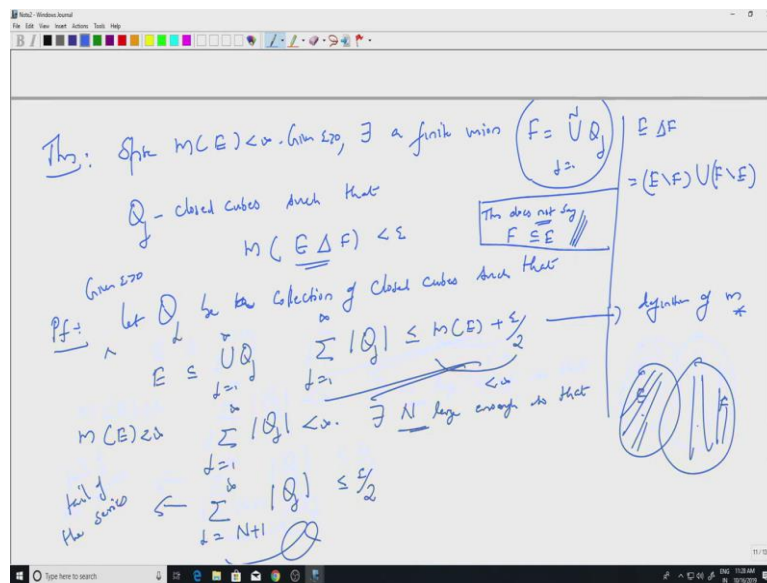 Note2 - Windows Journal
File Edit View Insert Actions Tools Help
Thm: Spse m(E)<∞. Given ε>0, ∃ a finite union F = ∪_{j=1}^{N} Q_j
E Δ F
= (E\F) ∪ (F\E)
Q_j - closed cubes such that
m(E Δ F) < ε
This does not say
F ⊆ E
Given ε>0
Pf: let Q_j be the collection of closed cubes such that
E ⊆ ∪_{j=1}^{∞} Q_j   ∑_{j=1}^{∞} |Q_j| ≤ m(E) + ε/2 → definition of m_*
<∞
E F
m(E)<∞   ∑_{j=1}^{∞} |Q_j| <∞. ∃ N large enough so that
tail of
the series ← ∑_{j=N+1}^{∞} |Q_j| ≤ ε/2
11/13
Type here to search
ENG 11:28 AM
IN 10/16/2019